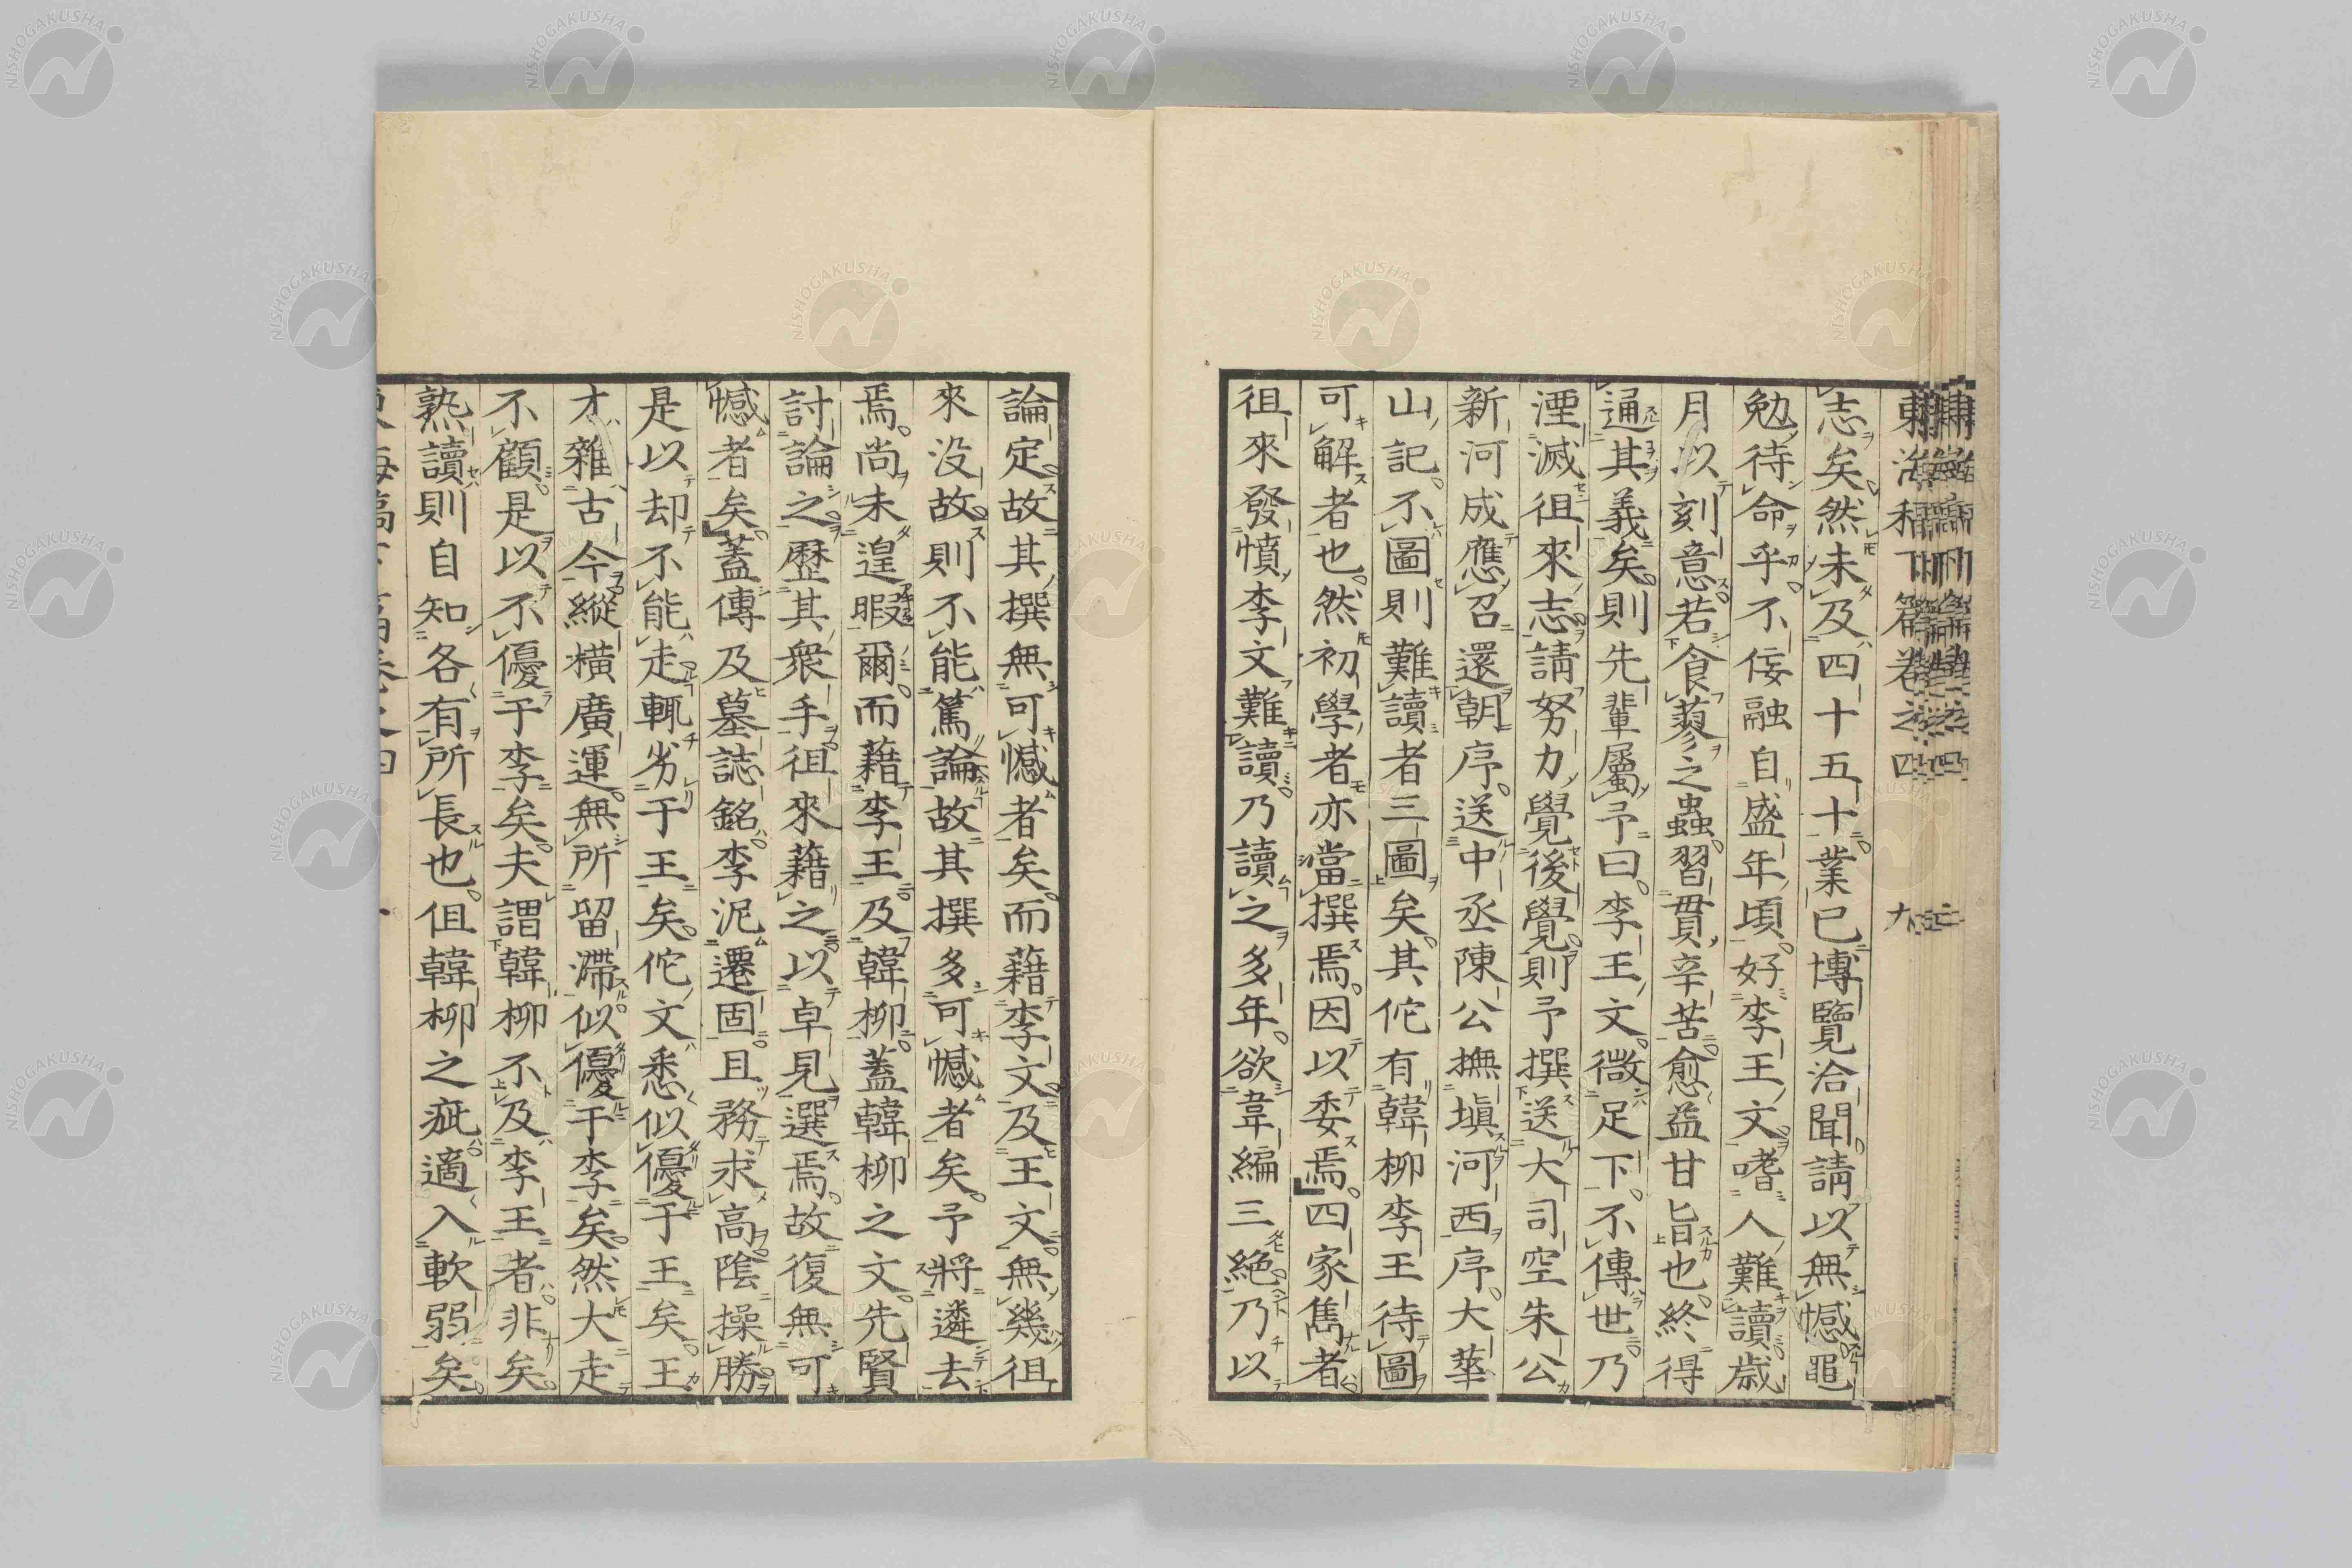 志矣然未及四十五十業已博覽洽聞請以無憾黽
勉待命乎不佞融自盛年頃好李王文嗜人難讀歳
月以刻意若食蓼之蟲習貫辛苦愈益甘旨也終得
通其義矣則先輩屬予曰李王文微足下不傳世乃
湮滅徂來志請努力覺後覺則予撰送大司空朱公
新河成應召還朝序送中丞陳公撫塡河西序大華
山記不圖則難讀者三圖矣其佗有韓柳李王待圖
可解者也然初學者亦當撰焉因以委焉四家雋者
徂來發憤李文難讀乃讀之多年欲韋編三絕乃以
論定故其撰無可憾者矣而藉李文及王文無幾徂
來没故則不能篤論故其撰多可憾者矣予將遴去
焉尚未遑暇爾而藉李王及韓柳蓋韓柳之文先賢
討論之歷其衆手徂來藉之以卓見選焉故復無可
憾者矣蓋傳及墓誌銘李泥遷固且務求高陰操勝
是以却不能走輒劣于王矣佗文悉似優于王矣王
才雜古今縱横廣運無所留滯似優于李矣然大走
不顧是以不優于李矣夫謂韓柳不及李王者非矣
熟讀則自知各有所長也伹韓柳之疵適入軟弱矣
NISHOGAKUSHA